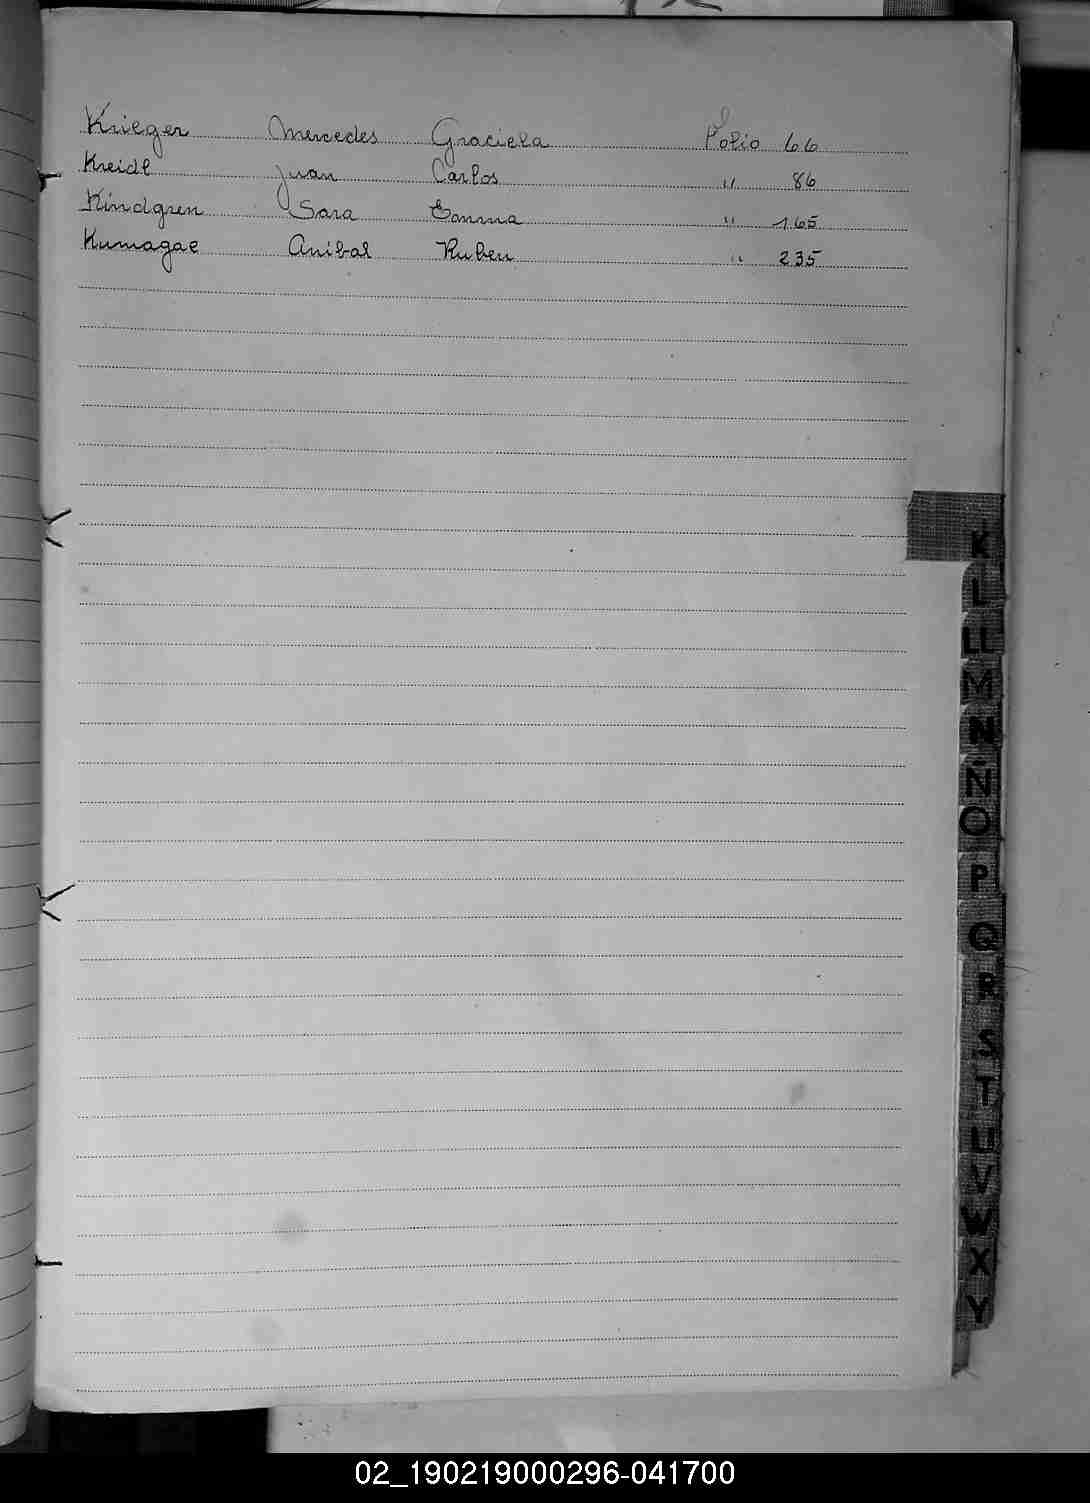 Krieger Mercedes Graciela Folio 66
Kreidl Juan Carlos " 86
Kindgren Sara Emma " 165
Kumagae Anibal Ruben " 235
K
L
LL
M
N
Ñ
O
P
Q
R
S
T
U
V
W
X
Y
02_190219000296-041700